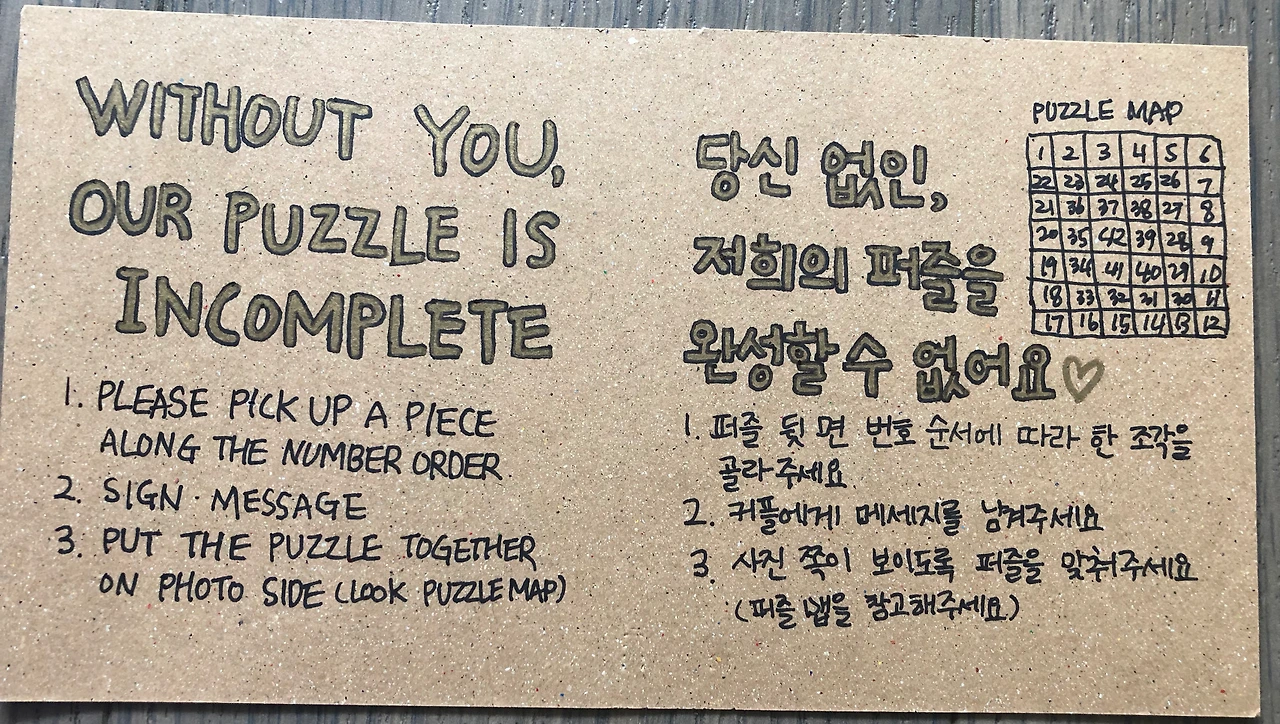 WITHOUT YOU,
OUR PUZZLE IS
INCOMPLETE
1. PLEASE PICK UP A PIECE
ALONG THE NUMBER ORDER
2. SIGN · MESSAGE
3. PUT THE PUZZLE TOGETHER
ON PHOTO SIDE (LOOK PUZZLE MAP)
당신 없인,
저희의 퍼즐을
완성할 수 없어요♡
1. 퍼즐 뒷 면 번호 순서에 따라 한 조각을
골라주세요
2. 커플에게 메세지를 남겨주세요
3. 사진 쪽이 보이도록 퍼즐을 맞춰주세요
(퍼즐 맵을 참고해주세요)
PUZZLE MAP
1 2 3 4 5 6
22 23 24 25 26 7
21 36 37 38 27 8
20 35 42 39 28 9
19 34 41 40 29 10
18 33 32 31 30 11
17 16 15 14 13 12